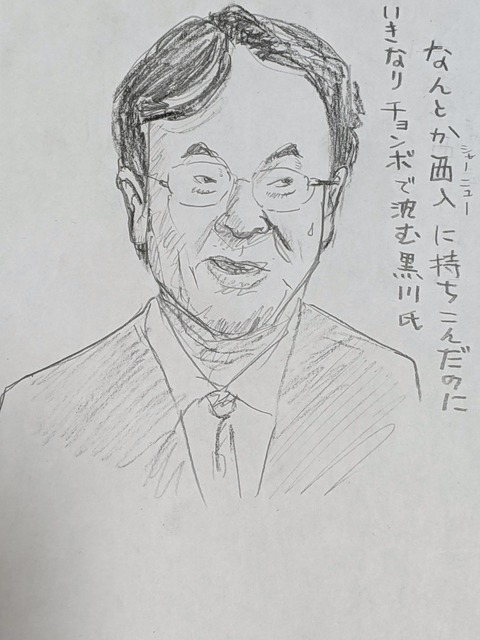 なんとか西入に持ちこんだのに
シャーニュー
いきなりチョンボで沈む黒川氏